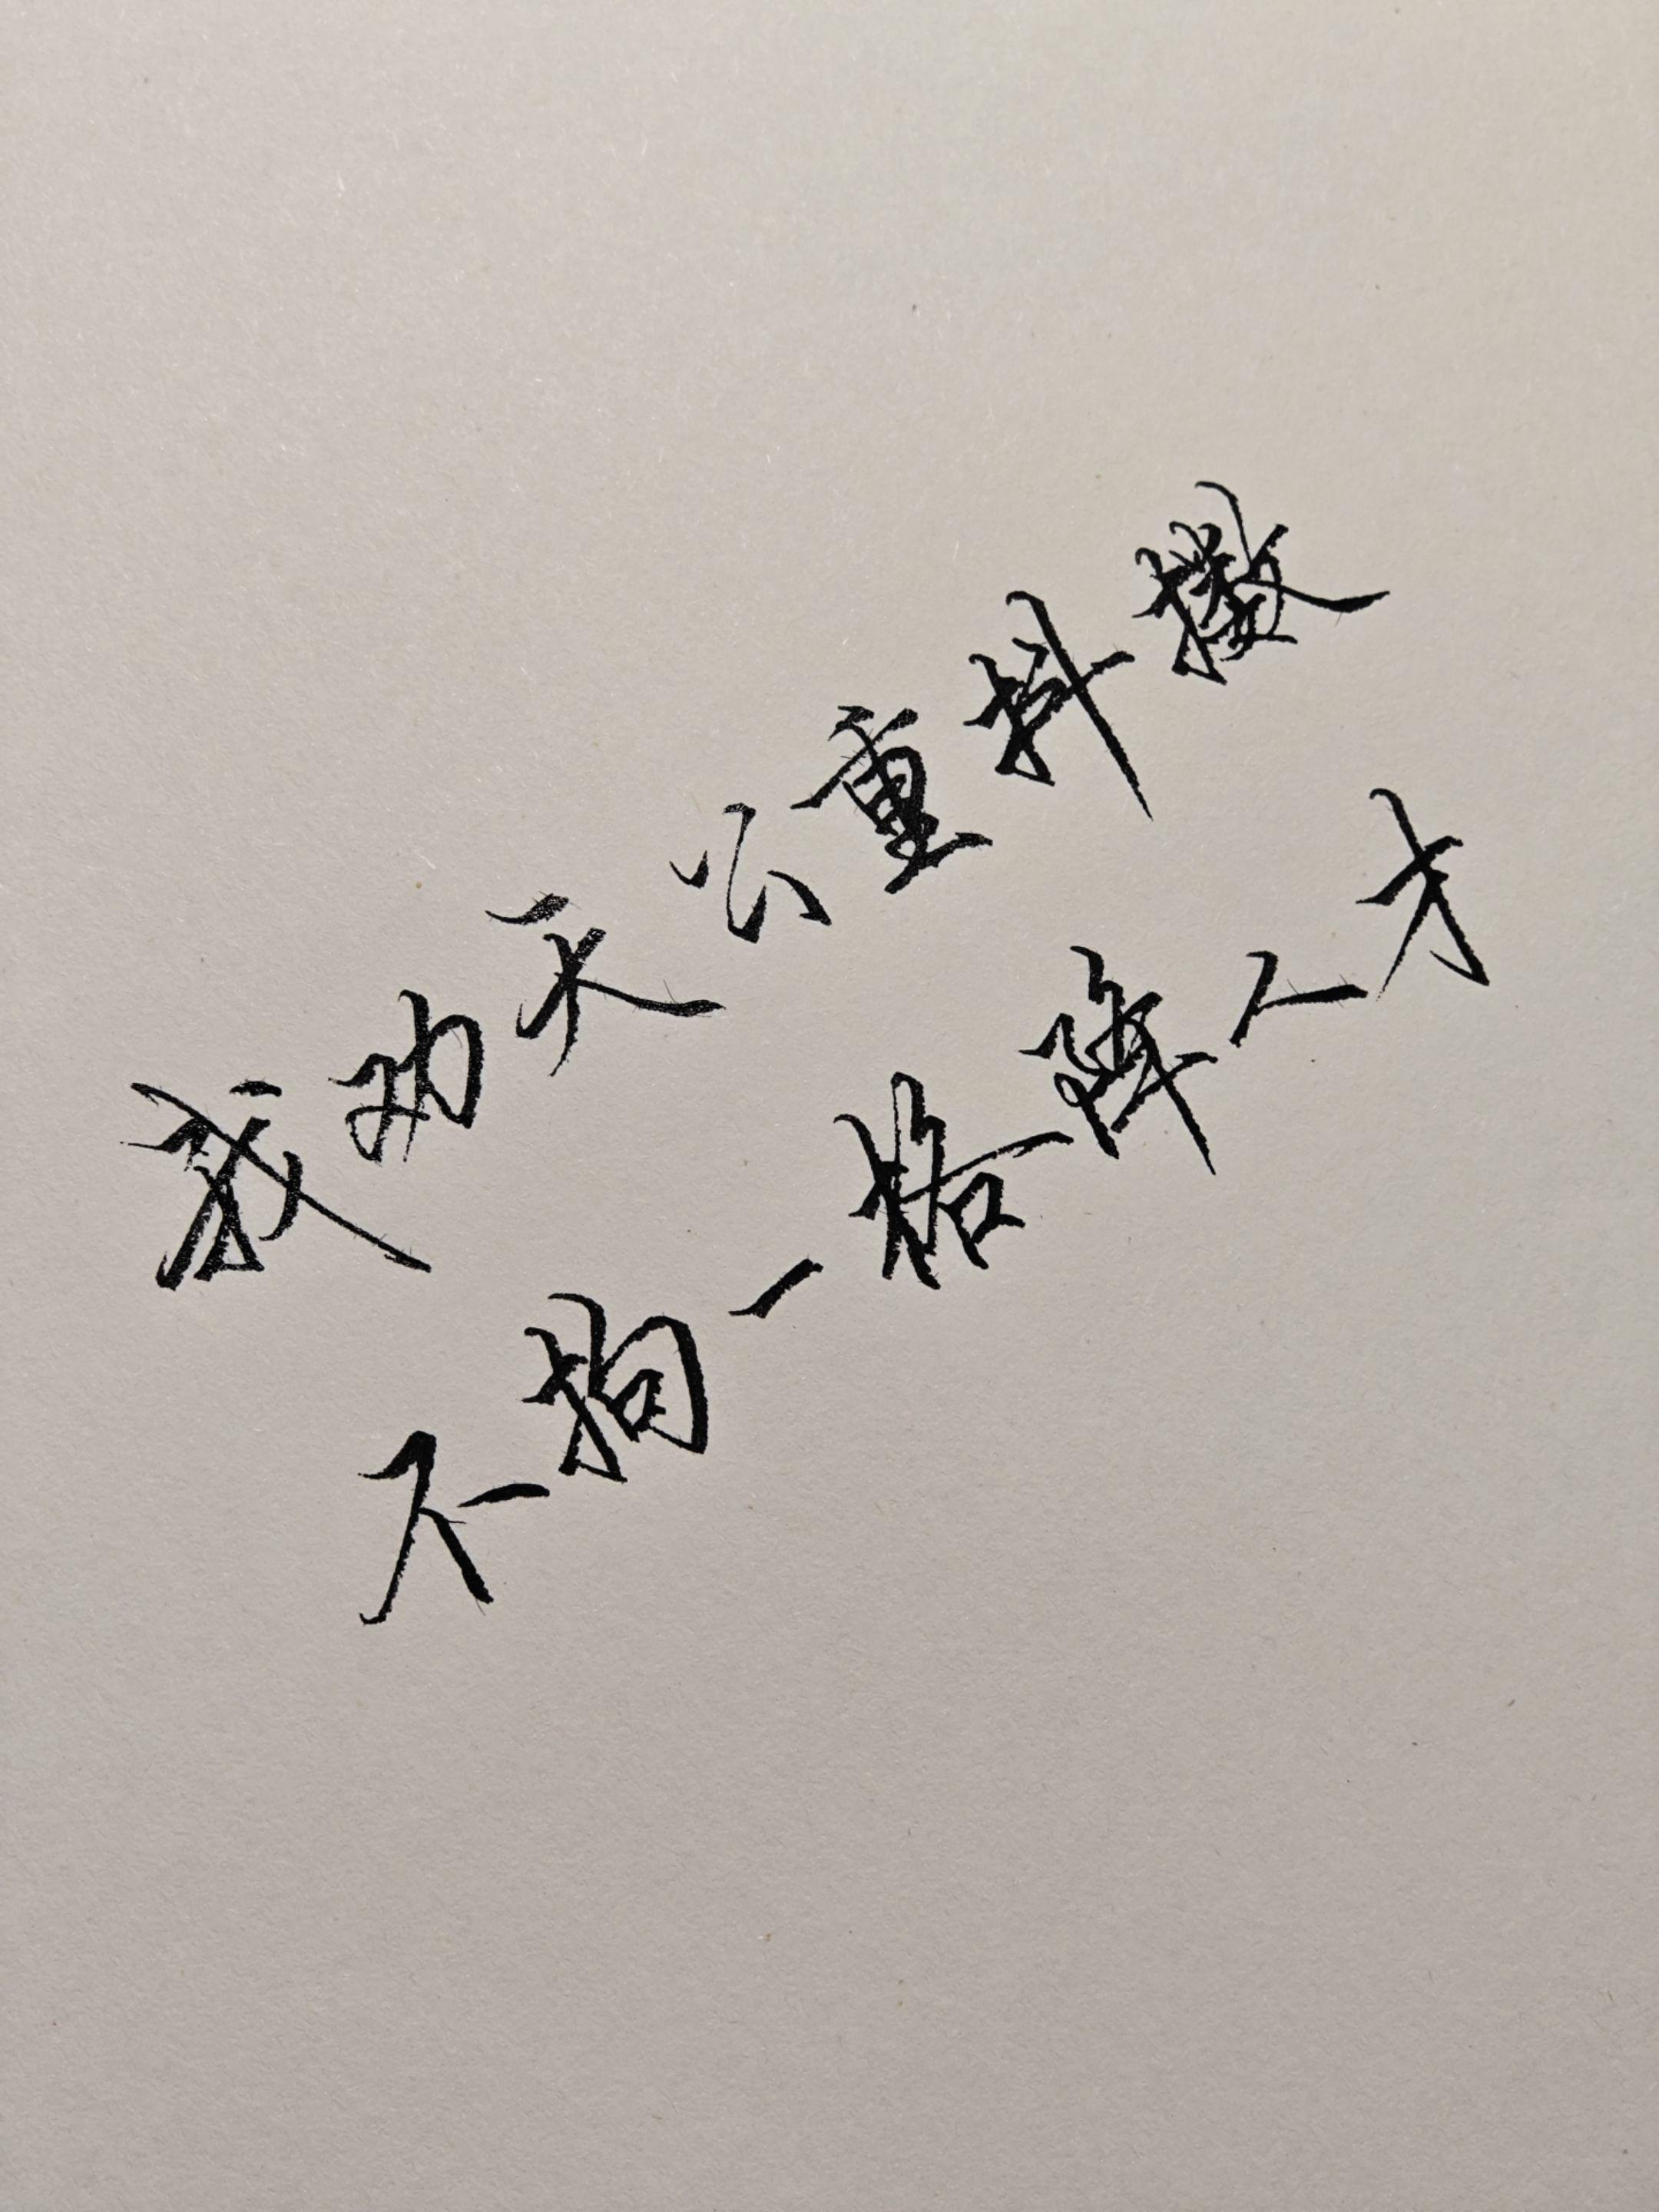 我劝天公重抖擞
不拘一格降人才